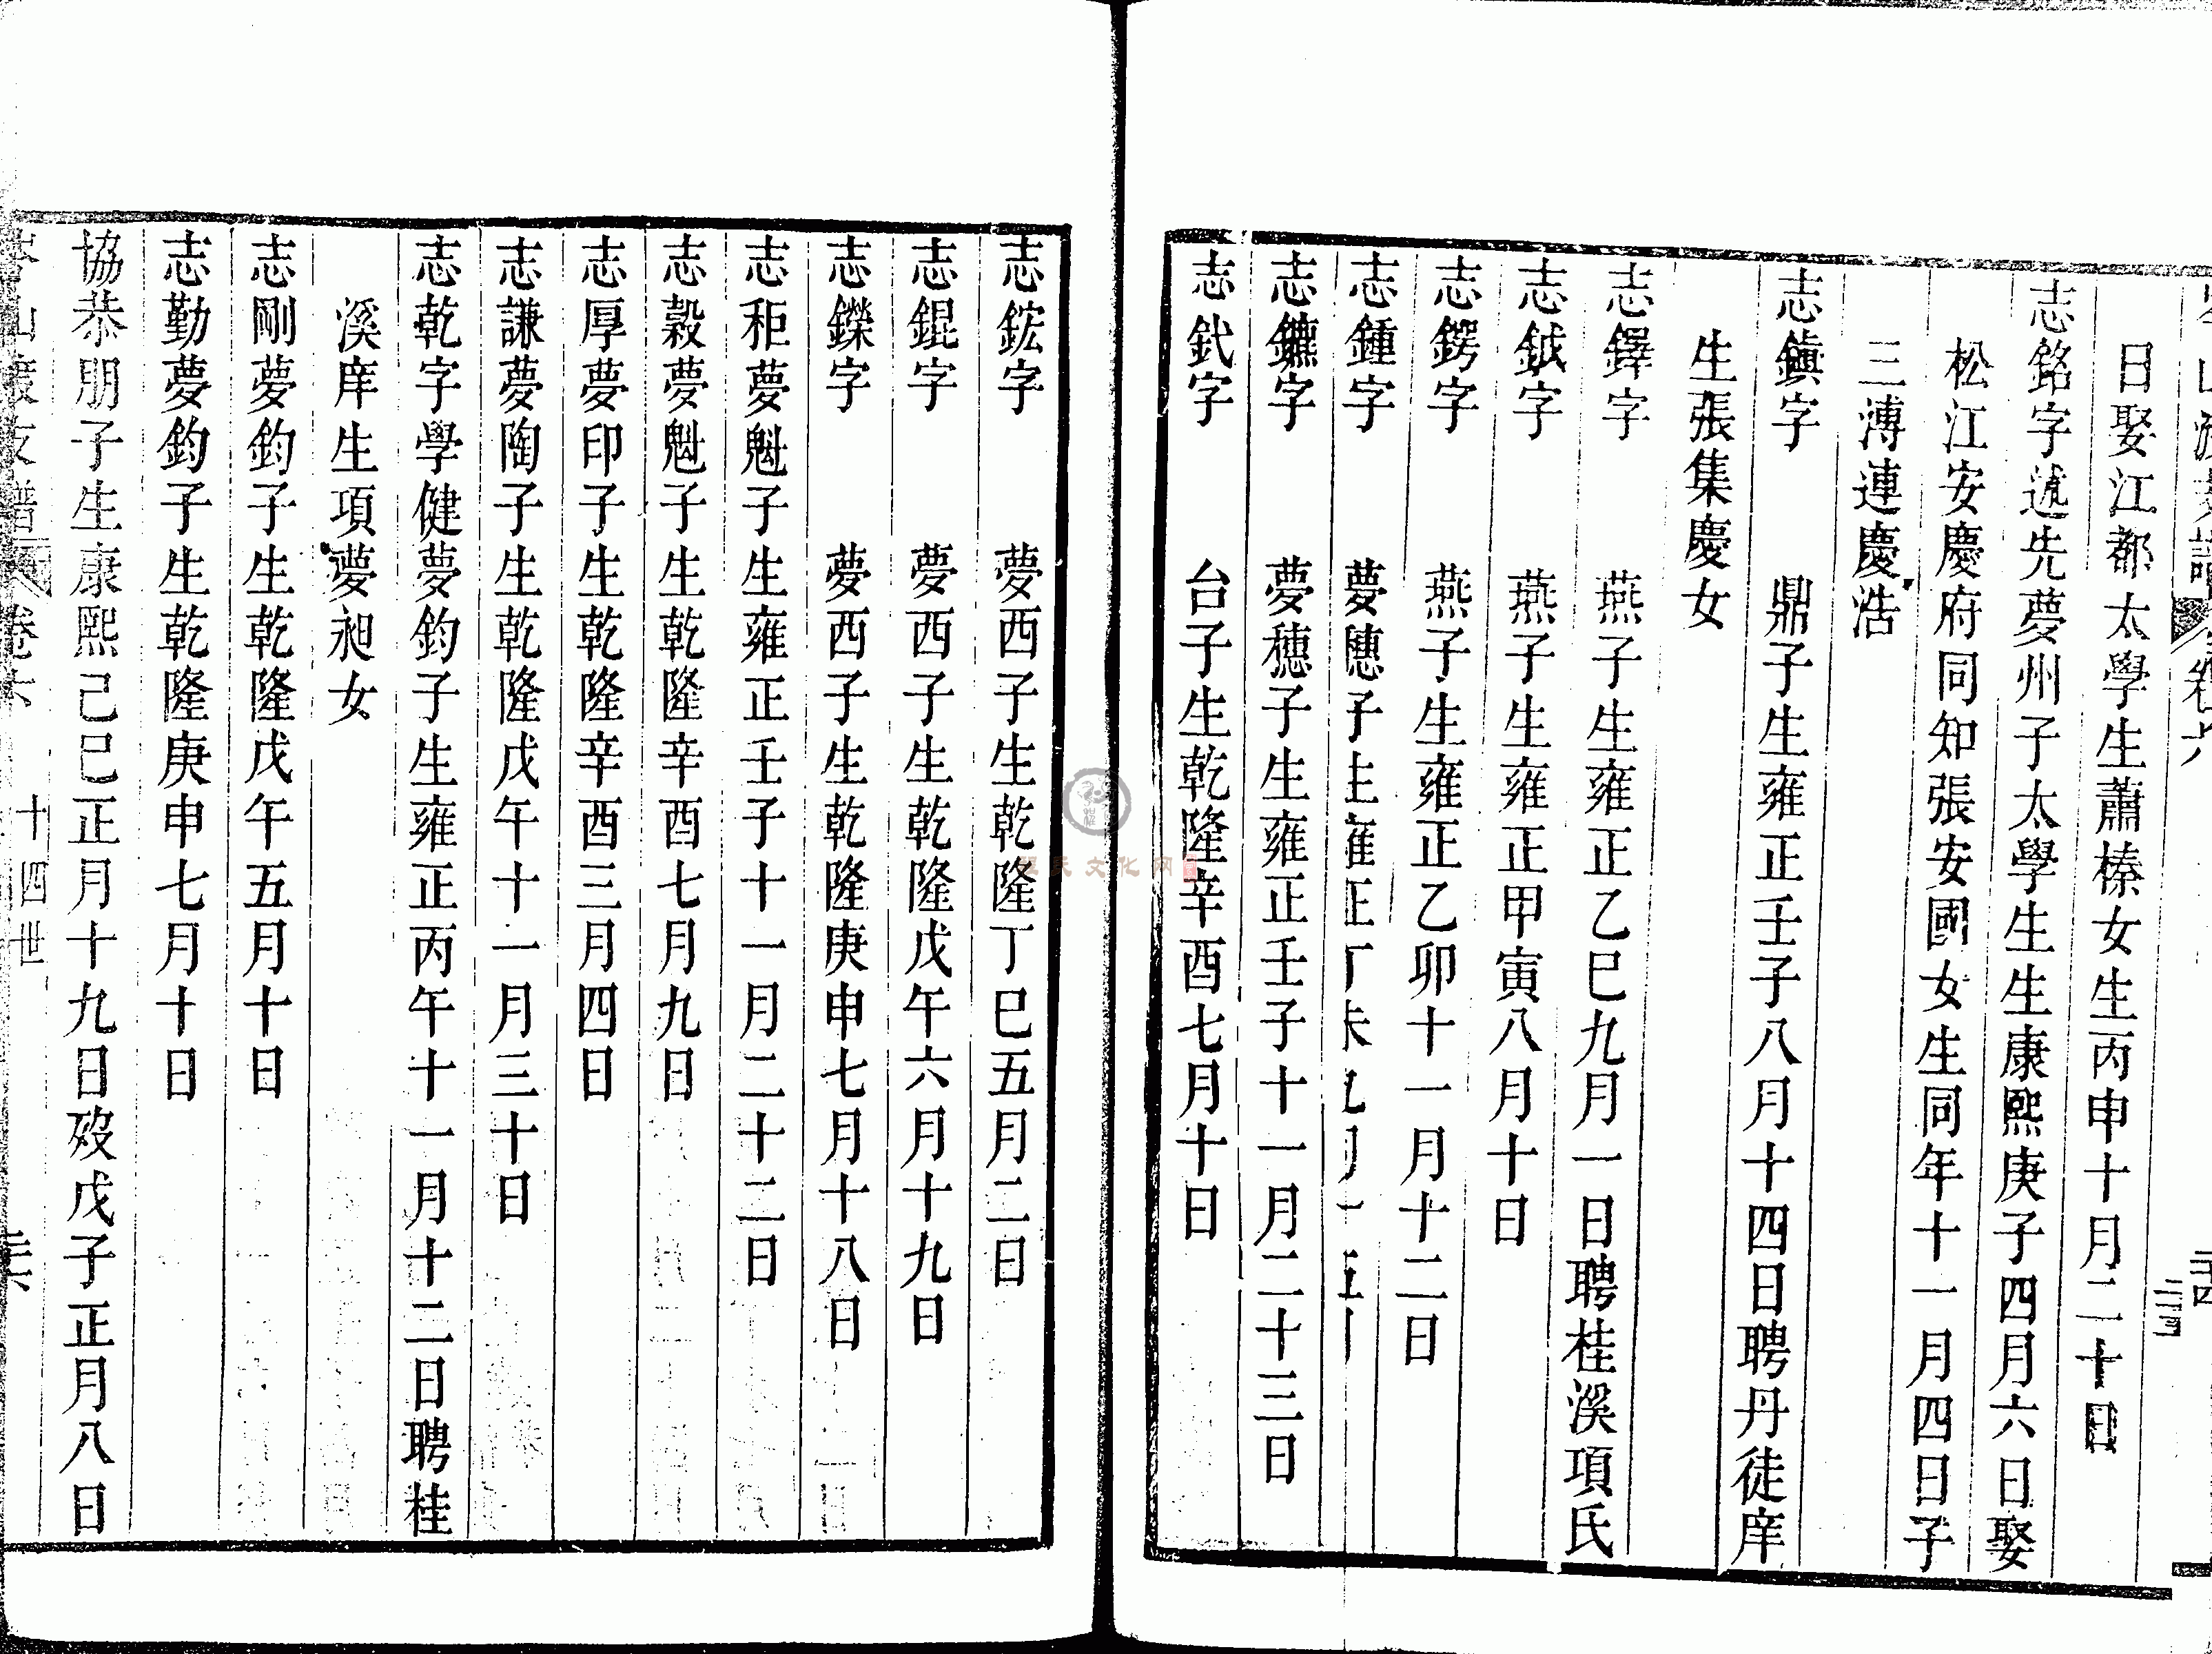 日娶江都太學生蕭榛女生丙申十月二十日
志銘字述先夢州子太學生生康熙庚子四月六日娶
松江安慶府同知張安國女生同年十一月四日子
三溥連慶浩
志鎮字 鼎子生雍正壬子八月十四日聘丹徒庠
生張集慶女
志鐸字 燕子生雍正乙巳九月一日聘桂溪項氏
志鉞字 燕子生雍正甲寅八月十日
志鍔字 燕子生雍正乙卯十一月十二日
志鍾字 夢 子生雍正丁未九月十五日
志鑣字 夢穗子生雍正壬子十一月二十三日
志釴字 台子生乾隆辛酉七月十日
志鋐字 夢西子生乾隆丁巳五月二日
志錕字 夢西子生乾隆戊午六月十九日
志鑠字 夢西子生乾隆庚申七月十八日
志秬夢魁子生雍正壬子十一月二十二日
志穀夢魁子生乾隆辛酉七月九日
志厚夢印子生乾隆辛酉三月四日
志謙夢陶子生乾隆戊午十一月三十日
志乾字學健夢鈞子生雍正丙午十一月十二日聘桂
溪庠生項夢昶女
志剛夢鈞子生乾隆戊午五月十日
志勤夢鈞子生乾隆庚申七月十日
協恭朋子生康熙己巳正月十九日歿戊子正月八日
岑山渡支譜 卷六 十四世